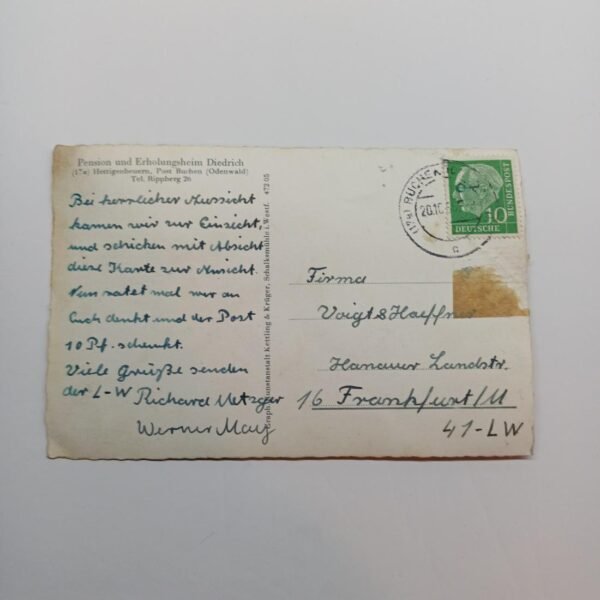 Pension und Erholungsheim Diedrich
(17a) Hettigenbeuern, Post Buchen (Odenwald)
Tel. Rippberg 26
Bei herrlicher Aussicht
kamen wir zur Einsicht
und schicken mit Absicht
diese Karte zur Ansicht.
Nun ratet mal wer an
Euch denkt und der Post
10 Pf. schenkt.
Viele Grüße senden
der L-W Richard Metzger
Werner May
Graph. Kunstanstalt Kettling & Krüger, Schalksmühle i. Westf. 472 05
(17a) BUCHEN
20.10.
c
10
DEUTSCHE
BUNDESPOST
Firma
Voigt & Haeffner
Hanauer Landstr.
16 Frankfurt/M
41-LW